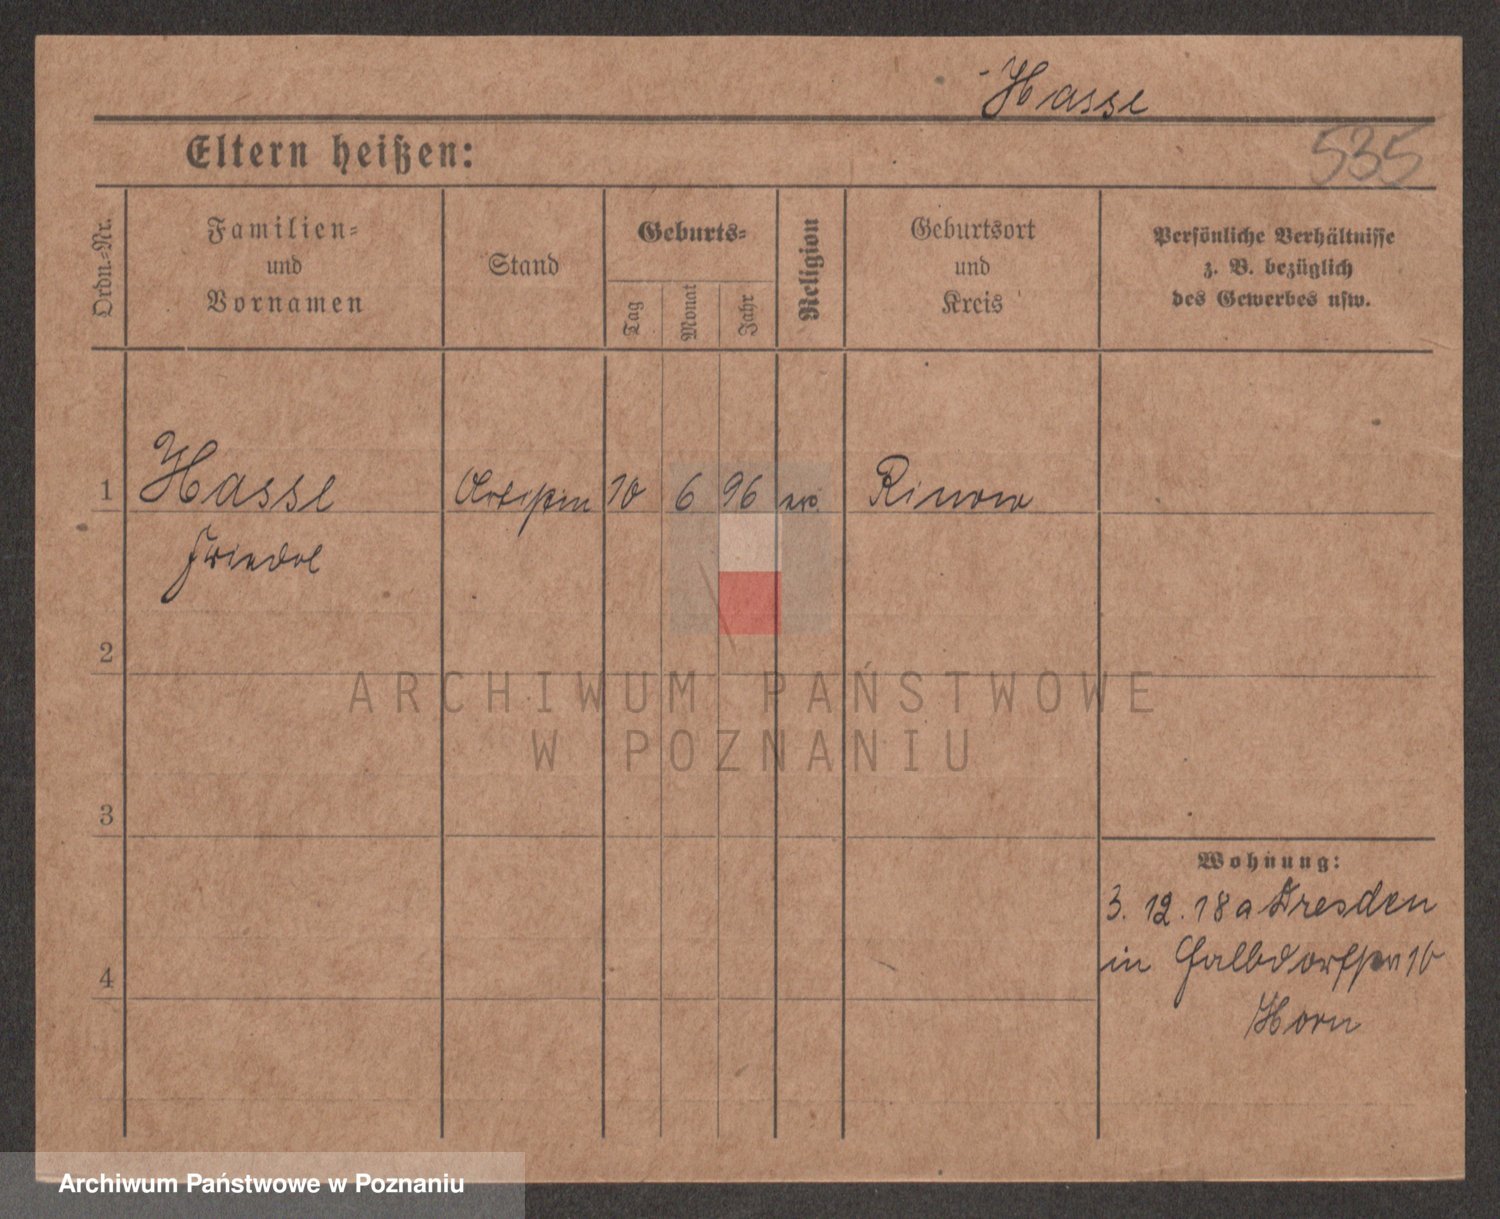 Hasse
Eltern heißen:
535
Ordn.-Nr.
Familien-
und
Vornamen
Stand
Geburts-
Tag
Monat
Jahr
Religion
Geburtsort
und
Kreis
Persönliche Verhältnisse
z. B. bezüglich
des Gewerbes usw.
1
Hasse
Artistin
10
6
96
Friedel
2
ARCHIWUM PAŃSTWOWE
W POZNANIU
3
Wohnung:
3. 12. 18 a Dresden
in 10
4
Horn
Archiwum Państwowe w Poznaniu